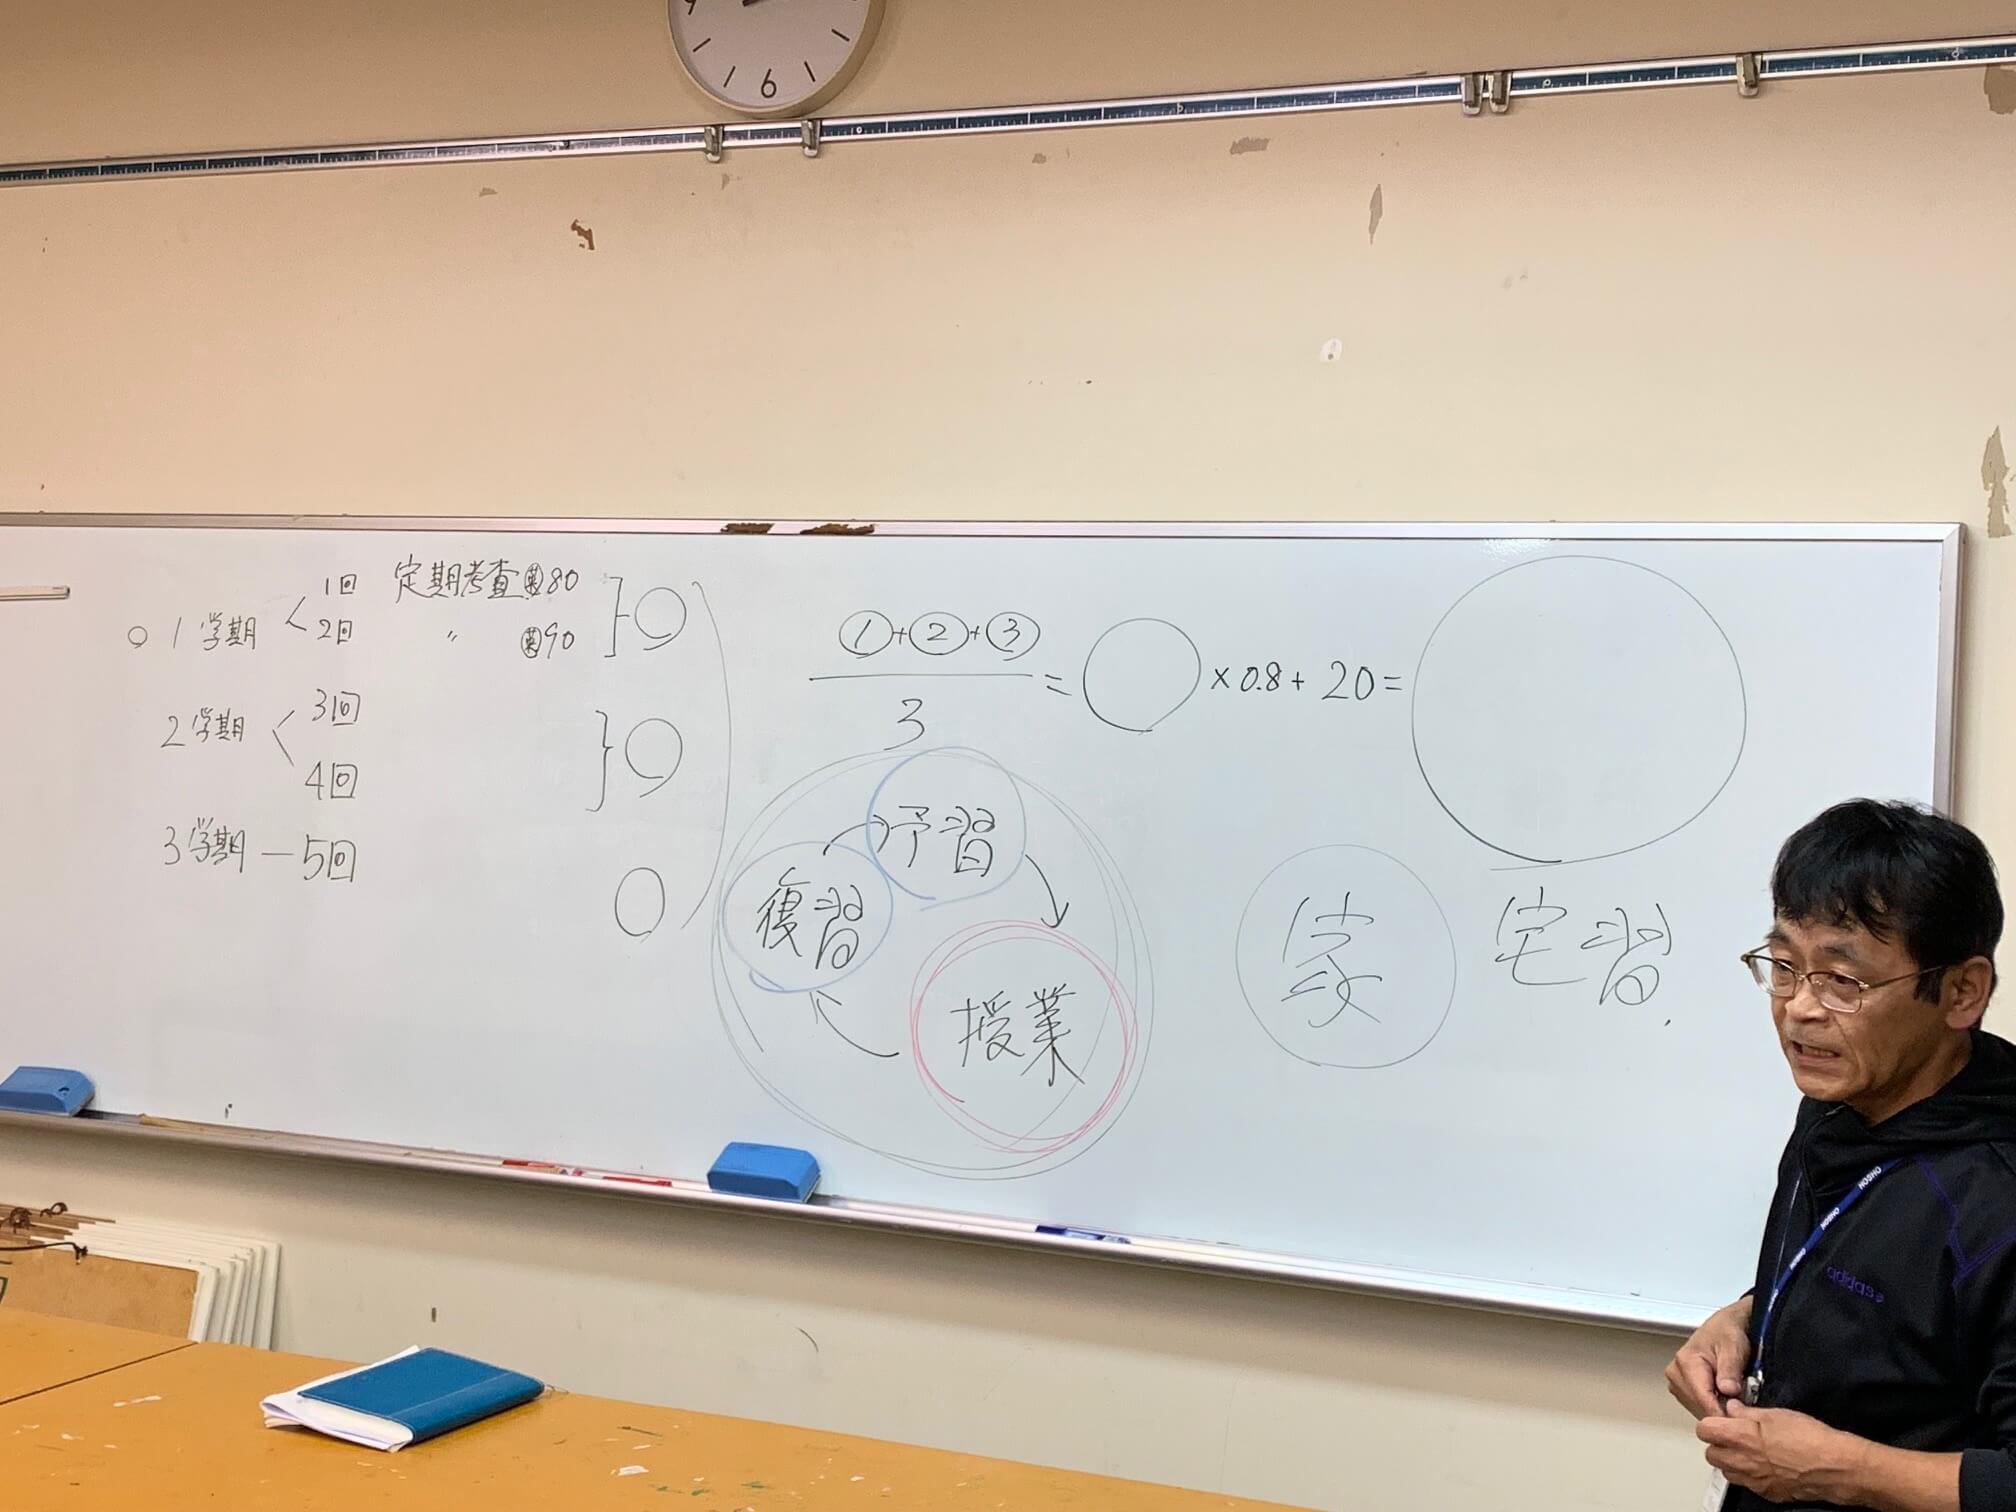 6
○ 1学期 1回 定期考査 英80
2回 〃 英90
2学期 3回
4回
3学期 — 5回
①+②+③
3
= ○ × 0.8 + 20 =
予習
復習
授業
家
宅習
HOSHO
HOSHO
HOSHO
adidas